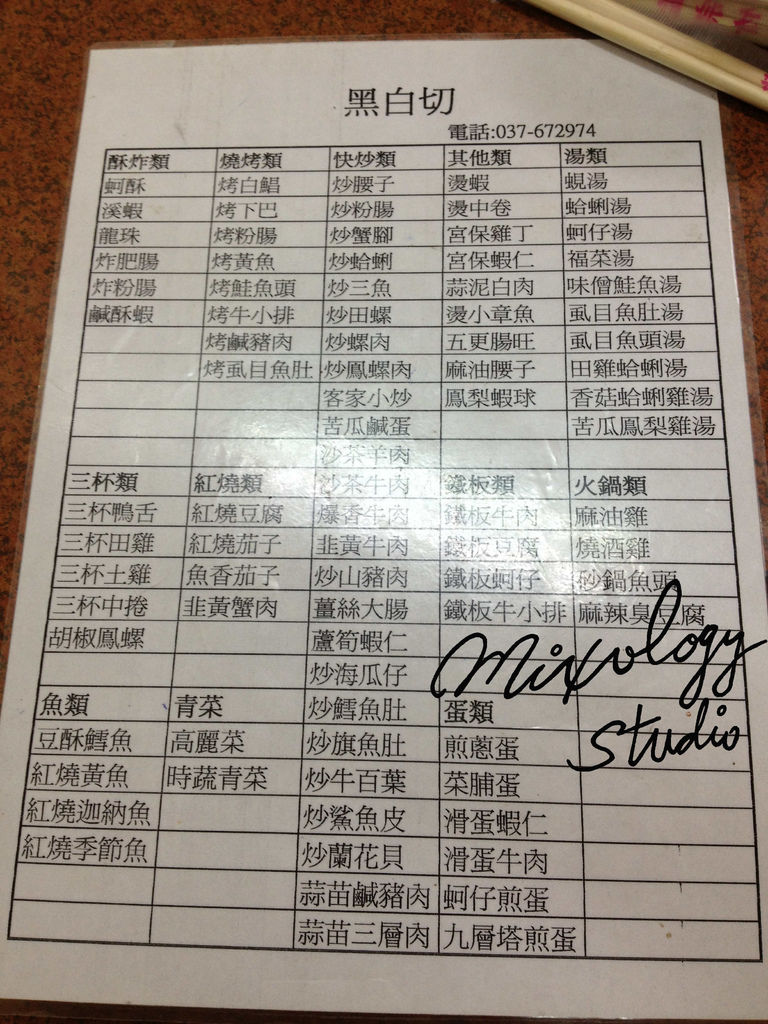 黑白切
電話:037-672974
酥炸類 燒烤類 快炒類 其他類 湯類
蚵酥 烤白鯧 炒腰子 燙蝦 蜆湯
溪蝦 烤下巴 炒粉腸 燙中卷 蛤蜊湯
龍珠 烤粉腸 炒蟹腳 宮保雞丁 蚵仔湯
炸肥腸 烤黃魚 炒蛤蜊 宮保蝦仁 福菜湯
炸粉腸 烤鮭魚頭 炒三魚 蒜泥白肉 味僧鮭魚湯
鹹酥蝦 烤牛小排 炒田螺 燙小章魚 虱目魚肚湯
烤鹹豬肉 炒螺肉 五更腸旺 虱目魚頭湯
烤虱目魚肚 炒鳳螺肉 麻油腰子 田雞蛤蜊湯
客家小炒 鳳梨蝦球 香菇蛤蜊雞湯
苦瓜鹹蛋 苦瓜鳳梨雞湯
沙茶羊肉
三杯類 紅燒類 沙茶牛肉 鐵板類 火鍋類
三杯鴨舌 紅燒豆腐 爆香牛肉 鐵板牛肉 麻油雞
三杯田雞 紅燒茄子 韭黃牛肉 鐵板豆腐 燒酒雞
三杯土雞 魚香茄子 炒山豬肉 鐵板蚵仔 砂鍋魚頭
三杯中捲 韭黃蟹肉 薑絲大腸 鐵板牛小排 麻辣臭豆腐
胡椒鳳螺 蘆筍蝦仁
炒海瓜仔
Mixology
Studio
魚類 青菜 炒鱈魚肚 蛋類
豆酥鱈魚 高麗菜 炒旗魚肚 煎蔥蛋
紅燒黃魚 時蔬青菜 炒牛百葉 菜脯蛋
紅燒迦納魚 炒鯊魚皮 滑蛋蝦仁
紅燒季節魚 炒蘭花貝 滑蛋牛肉
蒜苗鹹豬肉 蚵仔煎蛋
蒜苗三層肉 九層塔煎蛋